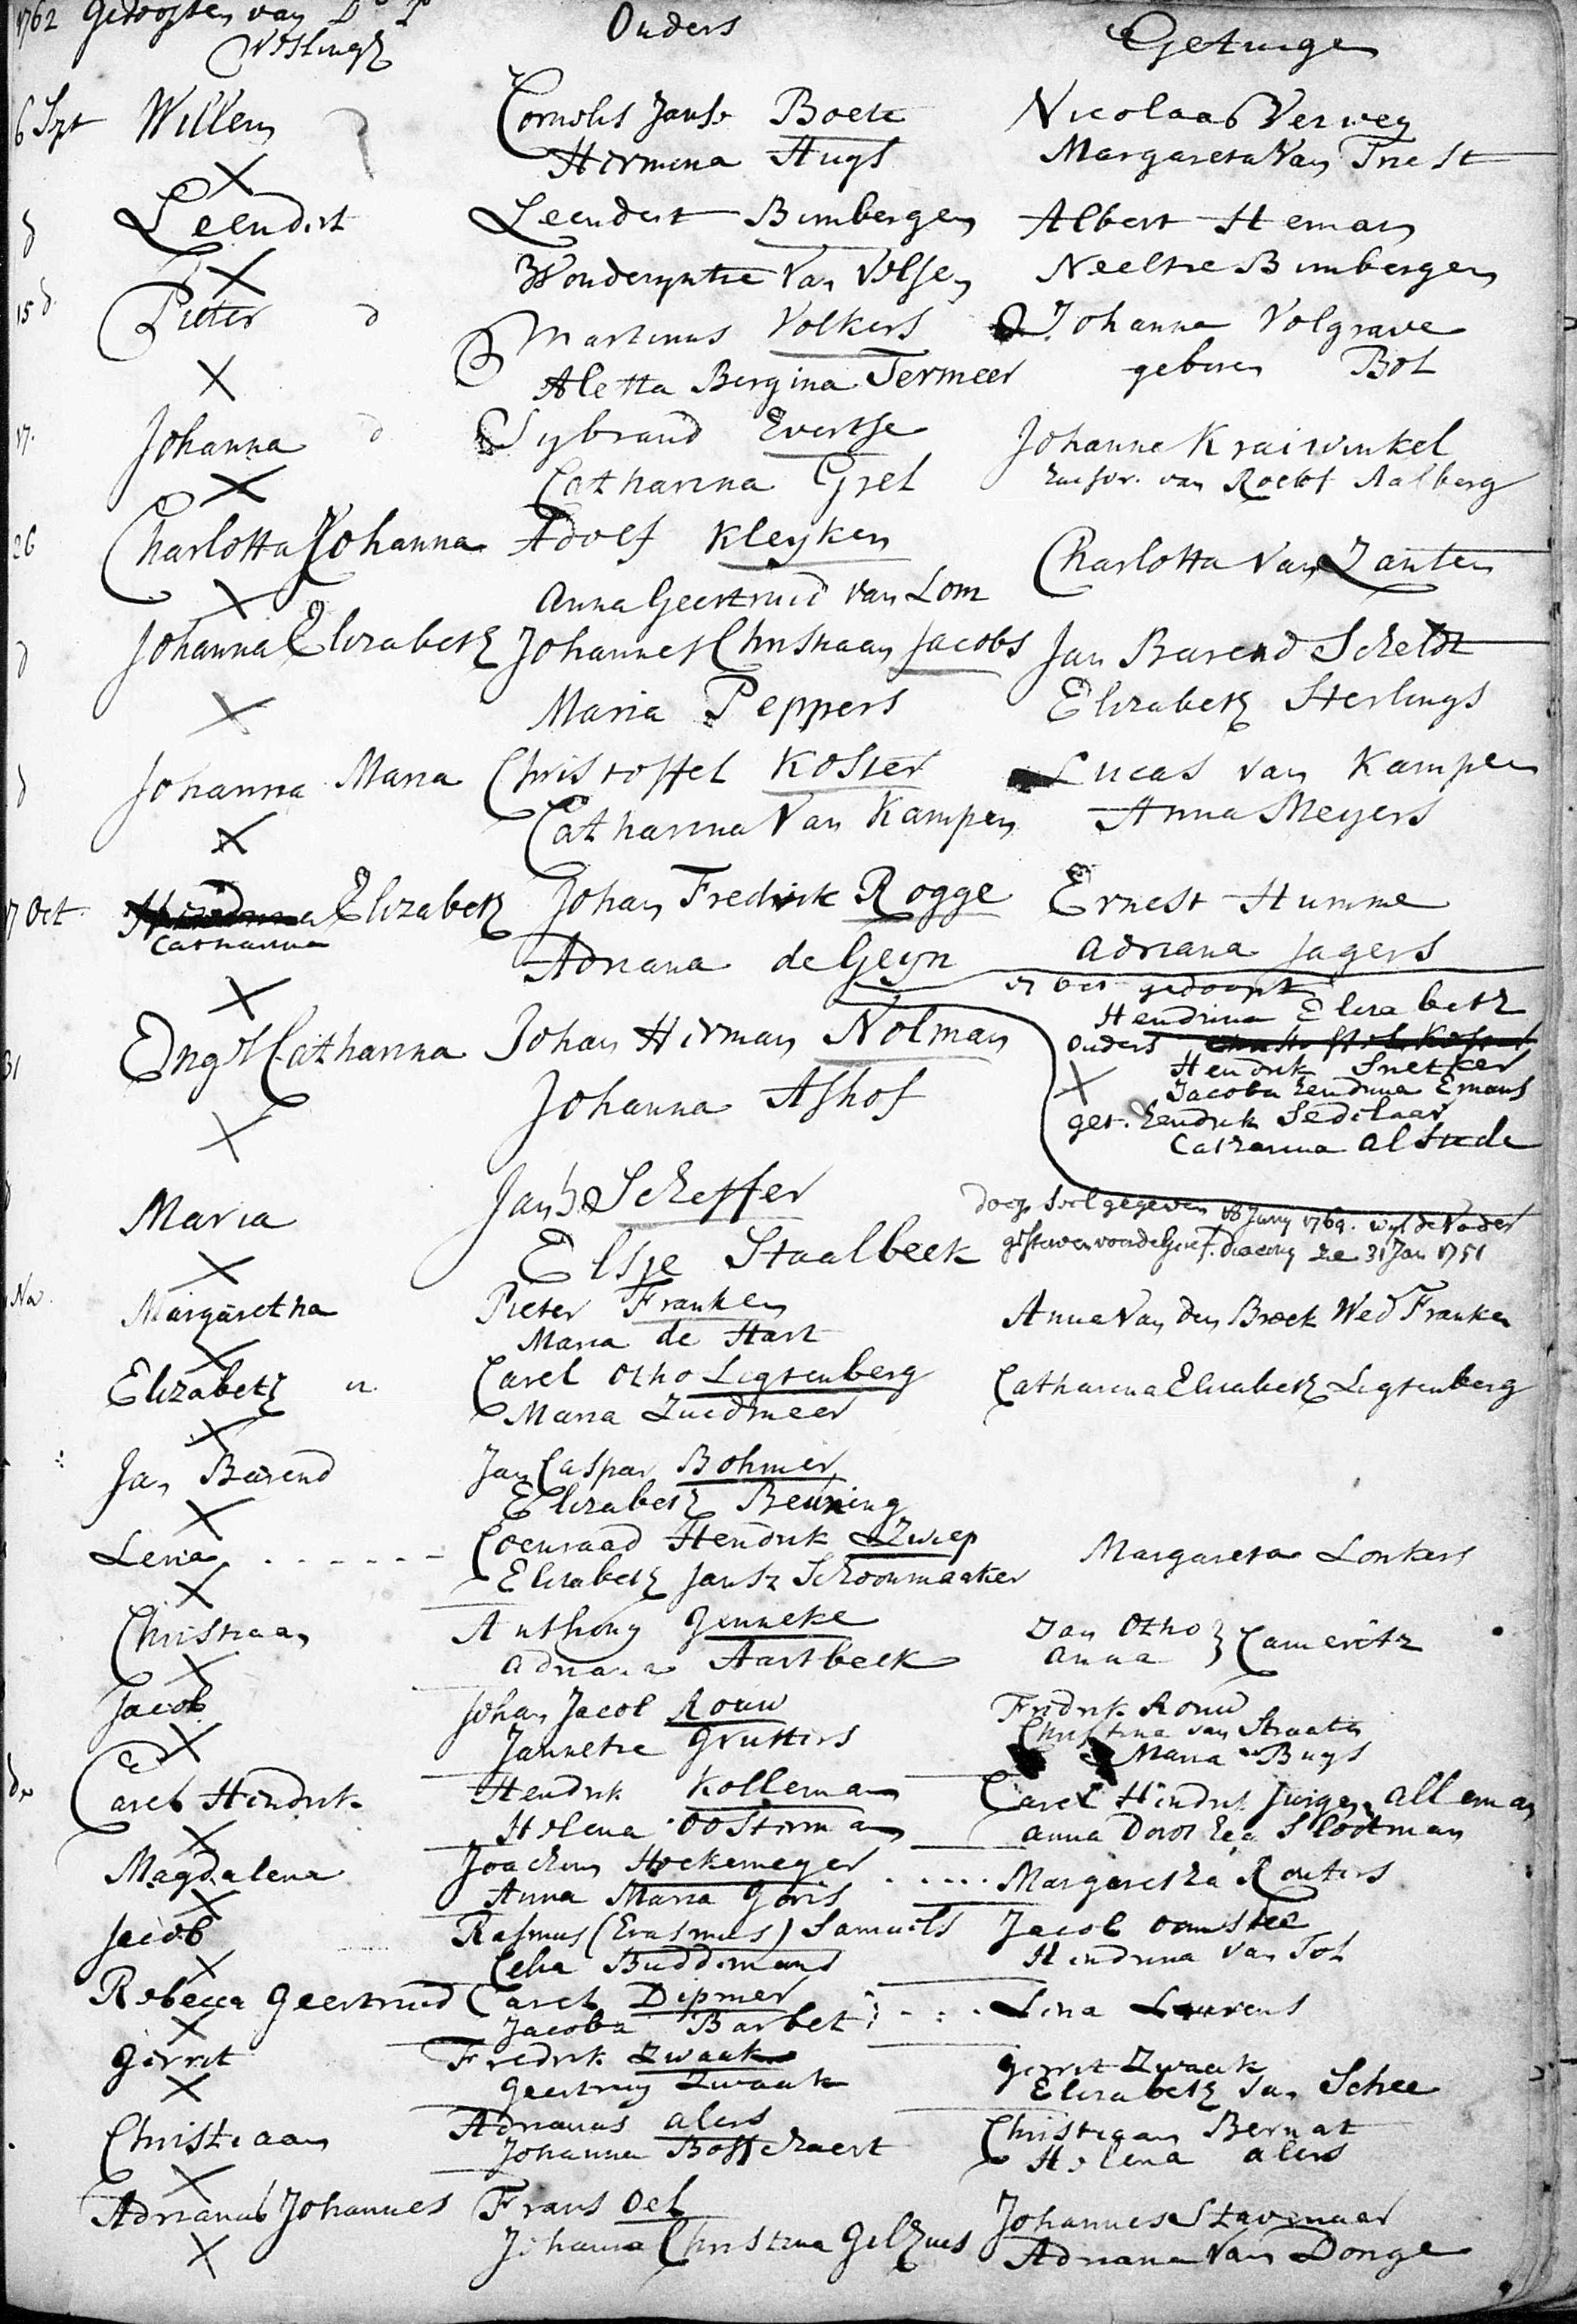 1762 Gedoopten van Ds P Ouders Getuige
Nosling
6 Sept Willem Cornelis Janse Boek Nicolaas Verweg
Hermina Huys Margareta Van Triest
d Leendert Leendert Bimbergen Albert Heman
Wonderyntie Van Velsen Neeltie Bimbergen
15 d. Pieter d Martinus Volkers Johanna Volgrave
Aletta Bergina Termeer geboren Bot
17. Johanna d Sybrand Evertse Johanna Kraiwinkel
Catharina Grel huisvr. van Roelof Aalberg
26 Charlotta Johanna Adolf Kleyken Charlotta Van Zanten
Anna Geertruid van Lom
d Johanna Elizabeth Johannes Christiaan Jacobs Jan Barend Scheldt
Maria Peppers Elizabeth Sterlings
d Johanna Maria Christoffel Koster Lucas van Kampen
Catharina Van Kampen Anna Meyers
17 Oct Elizabeth Johan Fredrik Rogge Ernest Humme
Catharina
Adriana de Geyn Adriana Jagers
17 Oct gedoopt
Hendrina Elizabeth
31 Engel Catharina Johan Herman Nolman Ouders Christoffel Koster
Hendrik Snetker
Johanna Ashof Jacoba Hendrina Emans
get. Hendrik Sedelaar
Catharina Alstede
Maria Jan H. Scheffer
doop Seel gegeven 18 Juny 1769. wyl de Vader
Elsje Staalbeek gestorven voor de Geref. diacony
31 Jan 1751
Nov. Margaretha Pieter Franken Anna Van den Broek Wed Franken
Maria de Hart
Elizabeth Carel Otho Ligtenberg Catharina Elizabeth Ligtenberg
Maria Zuidmeer
Jan Barend Jan Caspar Bohmer
Elizabeth Beuning
Lena Coenraad Hendrik Zwiep Margareta Lonkers
Elizabeth Jansz Schoonmaaker
Christiaan Anthony Jenneke Jan Otho } Cameritz
Adriana Hartbeek Anna
Jacob Johan Jacob Rouw Fredrik Rouw
Jannetie Grutters Christina van Straaten
Maria Buys
Carel Hendrik Hendrik Kolleman Carel Hendrik Jurgen Alleman
Helena Oosterman Anna Dorothea Slootman
Magdalena Joachim Hoekemeyer Margaretha Routers
Anna Maria Goris
Jacob Rasmus (Erasmus) Samuels Jacob Oomstee
Celia Buddemans Hendrina van Tol
Rebecca Geertruid Carel Dipmer Lena Laurens
Jacoba Barbet
Gerret Fredrik Zwaak Gerret Zwaak
Geertruy Zwaak Elizabeth van Schee
Christiaan Adrianus Alers Christiaan Bernat
Johanna Bosschaert Helena Alers
Adrianus Johannes Frans Oel Johannes Stavenaar
Johanna Christina Gelhuis Adriana Van Donge